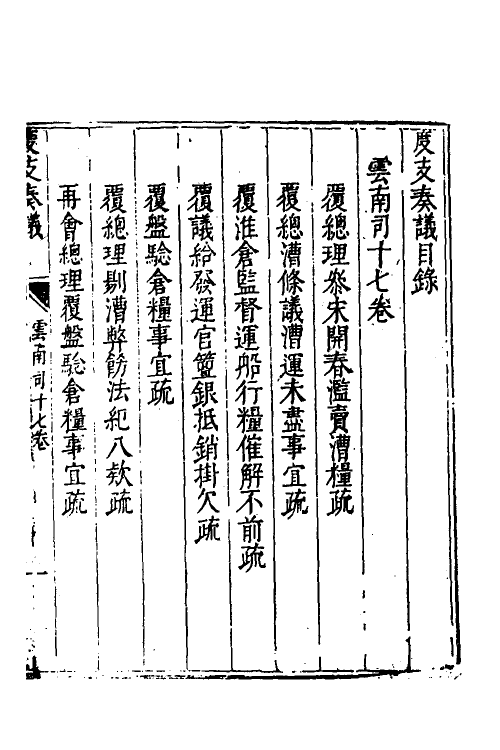 度支奏議目錄
雲南司十七卷
覆總理叅宋開春濫賣漕糧疏
覆總漕條議漕運未盡事宜疏
覆淮倉監督運船行糧催解不前疏
覆議給發運官簋銀抵銷掛欠疏
覆盤驗倉糧事宜疏
覆總理剔漕弊飭法紀八欸疏
再會總理覆盤驗倉糧事宜疏
度支奏議
雲南司十七卷